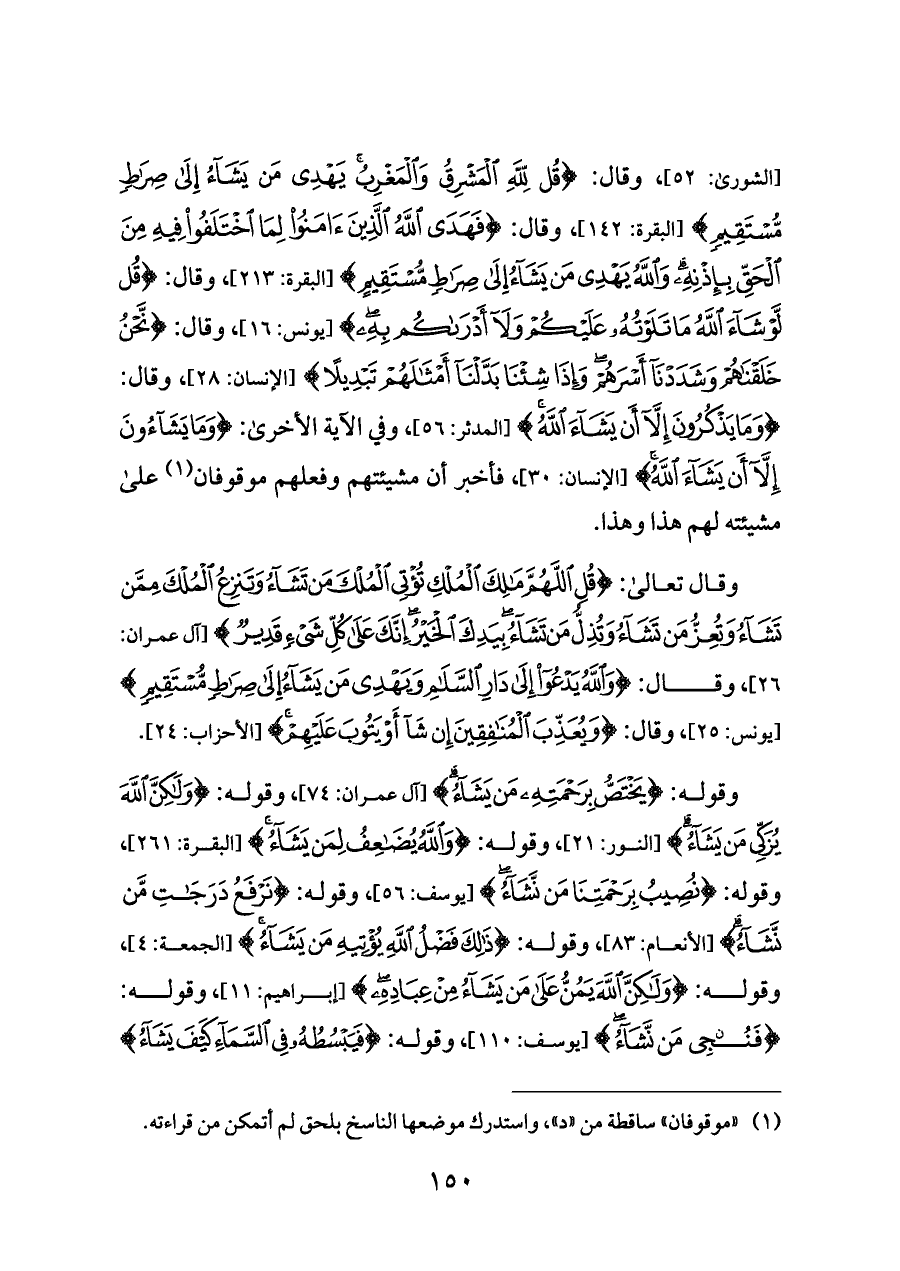 [الشورىٰ: ٥٢]، وقال: ﴿قُل لِّلَّهِ الْمَشْرِقُ وَالْمَغْرِبُ ۚ يَهْدِى مَن يَشَآءُ إِلَىٰ صِرَٰطٍ
مُّسْتَقِيمٍ﴾ [البقرة: ١٤٢]، وقال: ﴿فَهَدَى ٱللَّهُ ٱلَّذِينَ ءَامَنُوا۟ لِمَا ٱخْتَلَفُوا۟ فِيهِ مِنَ
ٱلْحَقِّ بِإِذْنِهِۦ ۗ وَٱللَّهُ يَهْدِى مَن يَشَآءُ إِلَىٰ صِرَٰطٍ مُّسْتَقِيمٍ﴾ [البقرة: ٢١٣]، وقال: ﴿قُل
لَّوْ شَآءَ ٱللَّهُ مَا تَلَوْتُهُۥ عَلَيْكُمْ وَلَآ أَدْرَىٰكُم بِهِۦ ۖ﴾ [يونس: ١٦]، وقال: ﴿نَّحْنُ
خَلَقْنَٰهُمْ وَشَدَدْنَآ أَسْرَهُمْ ۖ وَإِذَا شِئْنَا بَدَّلْنَآ أَمْثَٰلَهُمْ تَبْدِيلًا﴾ [الإنسان: ٢٨]، وقال:
﴿وَمَا يَذْكُرُونَ إِلَّآ أَن يَشَآءَ ٱللَّهُ ۚ﴾ [المدثر: ٥٦]، وفي الآية الأخرىٰ: ﴿وَمَا يَشَآءُونَ
إِلَّآ أَن يَشَآءَ ٱللَّهُ ۚ﴾ [الإنسان: ٣٠]، فأخبر أن مشيئتهم وفعلهم موقوفان(١) علىٰ
مشيئته لهم هذا وهذا.
وقال تعالىٰ: ﴿قُلِ ٱللَّهُمَّ مَٰلِكَ ٱلْمُلْكِ تُؤْتِى ٱلْمُلْكَ مَن تَشَآءُ وَتَنزِعُ ٱلْمُلْكَ مِمَّن
تَشَآءُ وَتُعِزُّ مَن تَشَآءُ وَتُذِلُّ مَن تَشَآءُ ۖ بِيَدِكَ ٱلْخَيْرُ ۖ إِنَّكَ عَلَىٰ كُلِّ شَىْءٍ قَدِيرٌ﴾ [آل عمران:
٢٦]، وقـال: ﴿وَٱللَّهُ يَدْعُوٓا۟ إِلَىٰ دَارِ ٱلسَّلَٰمِ وَيَهْدِى مَن يَشَآءُ إِلَىٰ صِرَٰطٍ مُّسْتَقِيمٍ﴾
[يونس: ٢٥]، وقال: ﴿وَيُعَذِّبَ ٱلْمُنَٰفِقِينَ إِن شَآءَ أَوْ يَتُوبَ عَلَيْهِمْ ۚ﴾ [الأحزاب: ٢٤].
وقوله: ﴿يَخْتَصُّ بِرَحْمَتِهِۦ مَن يَشَآءُ ۗ﴾ [آل عمران: ٧٤]، وقوله: ﴿وَلَٰكِنَّ ٱللَّهَ
يُزَكِّى مَن يَشَآءُ ۗ﴾ [النور: ٢١]، وقوله: ﴿وَٱللَّهُ يُضَٰعِفُ لِمَن يَشَآءُ ۚ﴾ [البقرة: ٢٦١]،
وقوله: ﴿نُصِيبُ بِرَحْمَتِنَا مَن نَّشَآءُ ۖ﴾ [يوسف: ٥٦]، وقوله: ﴿نَرْفَعُ دَرَجَٰتٍ مَّن
نَّشَآءُ ۗ﴾ [الأنعام: ٨٣]، وقوله: ﴿ذَٰلِكَ فَضْلُ ٱللَّهِ يُؤْتِيهِ مَن يَشَآءُ ۚ﴾ [الجمعة: ٤]،
وقوله: ﴿وَلَٰكِنَّ ٱللَّهَ يَمُنُّ عَلَىٰ مَن يَشَآءُ مِنْ عِبَادِهِۦ ۖ﴾ [إبراهيم: ١١]، وقوله:
﴿فَنُـۨجِى مَن نَّشَآءُ ۖ﴾ [يوسف: ١١٠]، وقوله: ﴿فَيَبْسُطُهُۥ فِى ٱلسَّمَآءِ كَيْفَ يَشَآءُ﴾
(١) «موقوفان» ساقطة من «د»، واستدرك موضعها الناسخ بلحق لم أتمكن من قراءته.
١٥٠